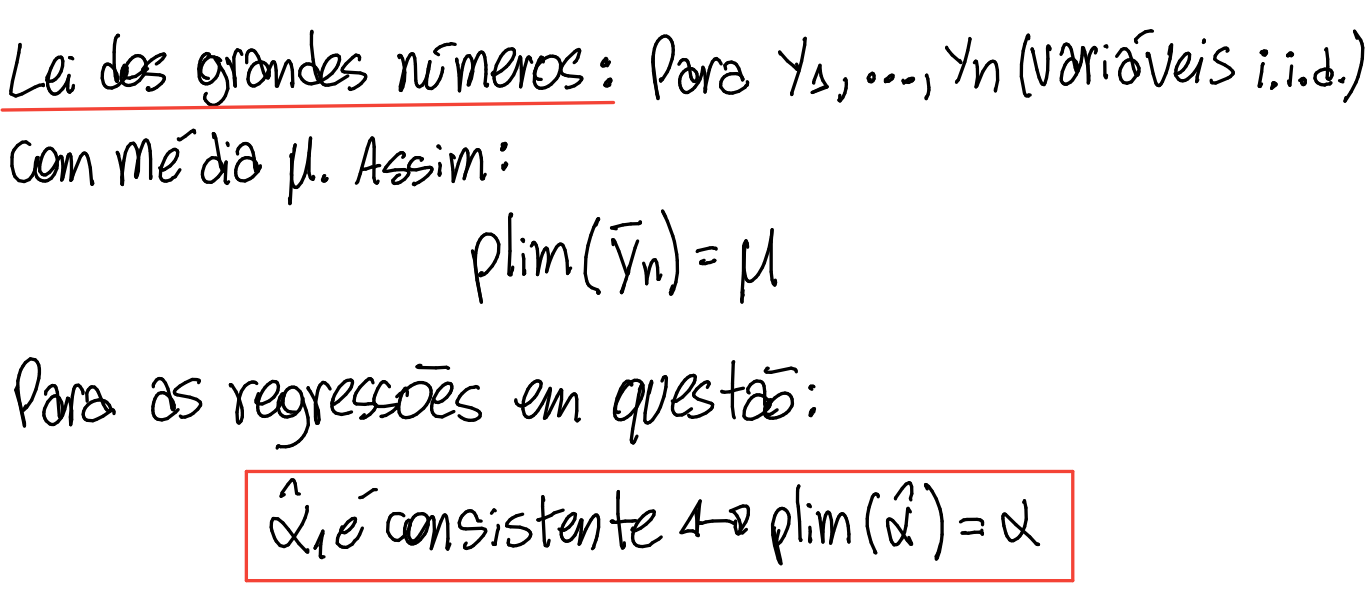 Lei dos grandes números: Para Y₁, ..., Yn (variáveis i.i.d.)
com média μ. Assim:
plim(Ȳn) = μ
Para as regressões em questão:
α̂₁ é consistente ↔ plim(α̂) = α